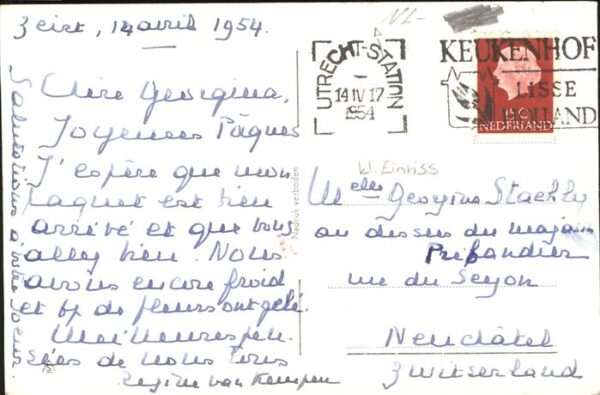 Zeist, 14 avril 1954.
Chère Georgina,
Joyeuses Pâques
J'espère que mon
paquet est bien
arrivé et que vous
allez bien. Nous
avons encore froid
et bp de fleurs ont gelé.
Meilleures pen
sées de nous tous
Régine van Kempen
Salutations à votre soeur.
NL-
UTRECHT-STATION
14 IV 17
1954
KEUKENHOF
LISSE
HOLLAND
NEDERLAND
W. Einriss
Nadruk verboden
Melle Georgina
au dessus du magasin
rue du Seyon
Neuchâtel
Zwitserland